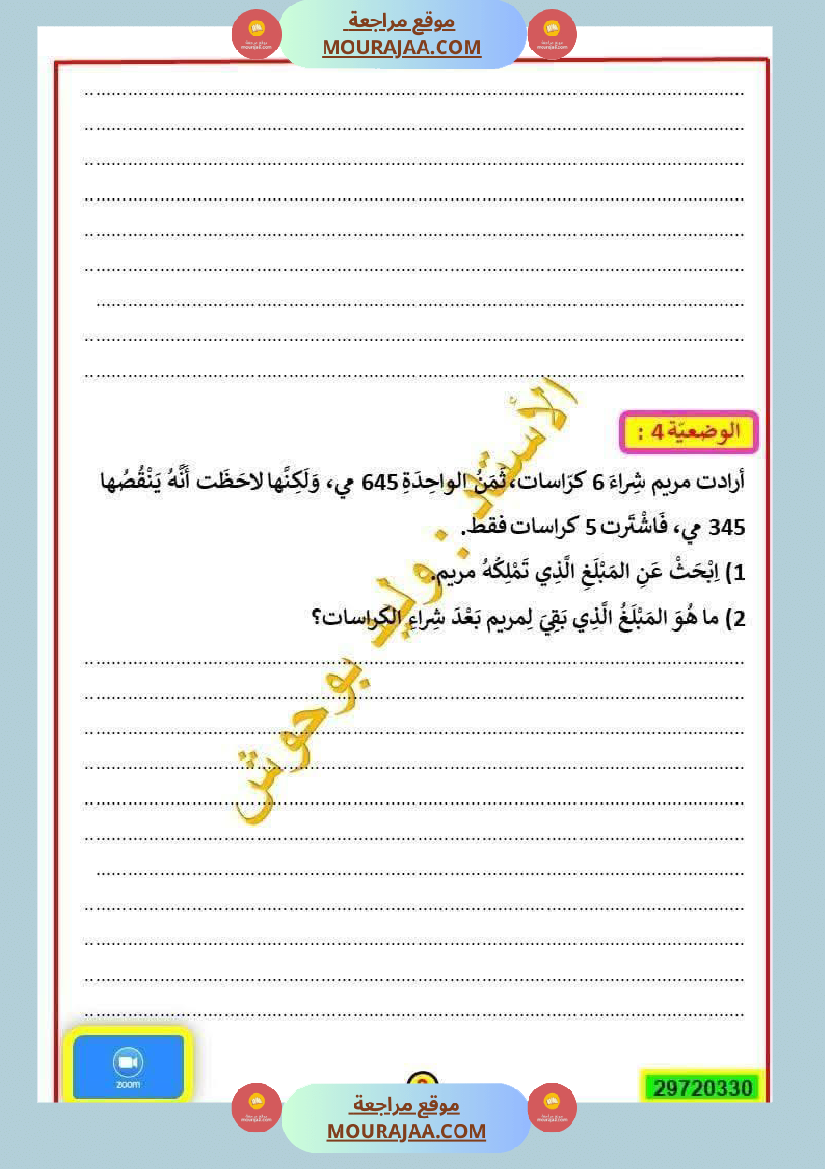 موقع مراجعة
MOURAJAA.COM
الوضعيّة 4 :
أرادت مريم شِراءَ 6 كرّاسات، ثَمَنُ الواحِدَةِ 645 مي، وَلَكِنَّها لاحَظَت أَنَّهُ يَنْقُصُها
345 مي، فَاشْتَرت 5 كراسات فقط.
1) اِبْحَثْ عَنِ المَبْلَغِ الَّذِي تَمْلِكُهُ مريم.
2) ما هُوَ المَبْلَغُ الَّذِي بَقِيَ لِمريم بَعْدَ شِراءِ الكراسات؟
الأستاذ : وليد بوحوش
zoom
29720330
موقع مراجعة
MOURAJAA.COM